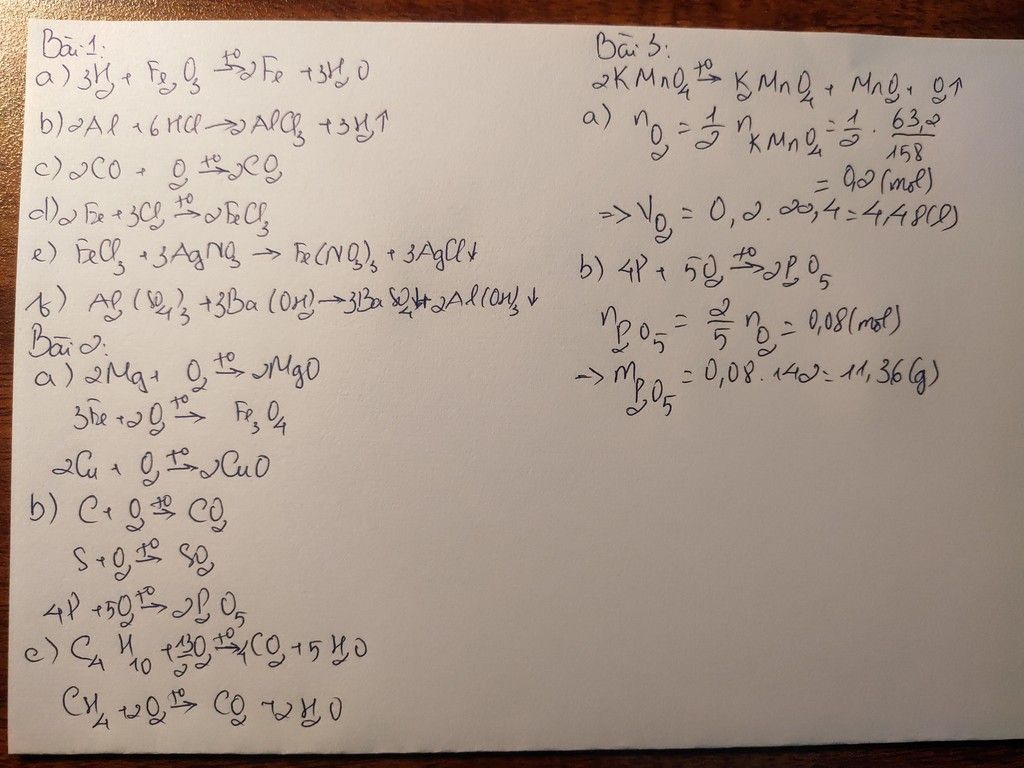 Bài 1:
a) 3H₂ + Fe₂O₃ →(t⁰) 2Fe + 3H₂O
b) 2Al + 6HCl → 2AlCl₃ + 3H₂↑
c) 2CO + O₂ →(t⁰) 2CO₂
d) 2Fe + 3Cl₂ →(t⁰) 2FeCl₃
e) FeCl₃ + 3AgNO₃ → Fe(NO₃)₃ + 3AgCl↓
f) Al₂(SO₄)₃ + 3Ba(OH)₂ → 3BaSO₄↓ + 2Al(OH)₃↓
Bài 2:
a) 2Mg + O₂ →(t⁰) 2MgO
3Fe + 2O₂ →(t⁰) Fe₃O₄
2Cu + O₂ →(t⁰) 2CuO
b) C + O₂ →(t⁰) CO₂
S + O₂ →(t⁰) SO₂
4P + 5O₂ →(t⁰) 2P₂O₅
c) C₄H₁₀ + 13/2O₂ →(t⁰) 4CO₂ + 5H₂O
CH₄ + 2O₂ →(t⁰) CO₂ + 2H₂O
Bài 3:
2KMnO₄ →(t⁰) K₂MnO₄ + MnO₂ + O₂↑
a) n O₂ = 1/2 n KMnO₄ = 1/2 . 63,2/158
= 0,2 (mol)
=> V O₂ = 0,2 . 22,4 = 4,48 (l)
b) 4P + 5O₂ →(t⁰) 2P₂O₅
n P₂O₅ = 2/5 n O₂ = 0,08 (mol)
=> m P₂O₅ = 0,08 . 142 = 11,36 (g)